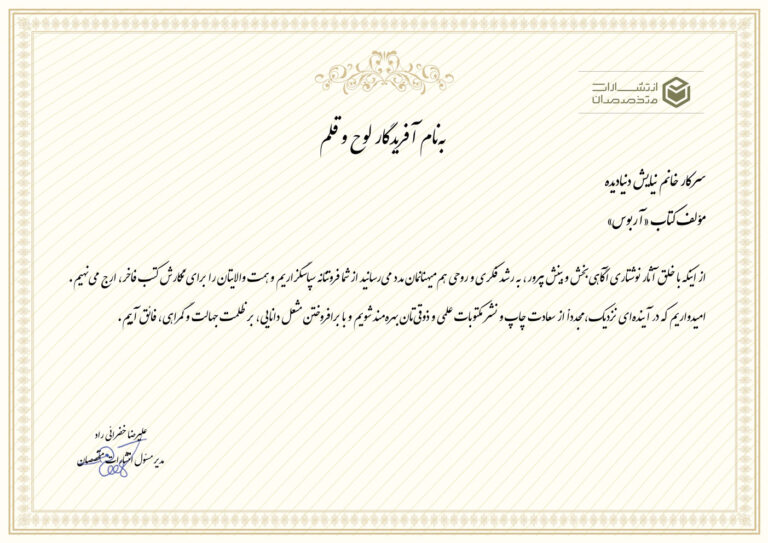 انتشارات
متخصصان
به‌نام آفریدگار لوح و قلم
سرکار خانم نیایش دنیادیده
مؤلف کتاب «آربوس»
از اینکه با خلق آثار نوشتاری آگاهی‌بخش و بینش پرور، به رشد فکری و روحی هم میهنانمان مدد می‌رسانید از شما فروتنانه سپاسگزاریم و همت والایتان را برای نگارش کتب فاخر، ارج می‌نهیم.
امیدواریم که در آینده‌ای نزدیک، مجدداً از سعادت چاپ و نشر مکتوبات علمی و ذوقی‌تان بهره‌مند شویم و با برافروختن مشعل دانایی، بر ظلمت جهالت و گمراهی، فائق آییم.
علیرضا خفرائی راد
مدیر مسئول انتشارات متخصصان